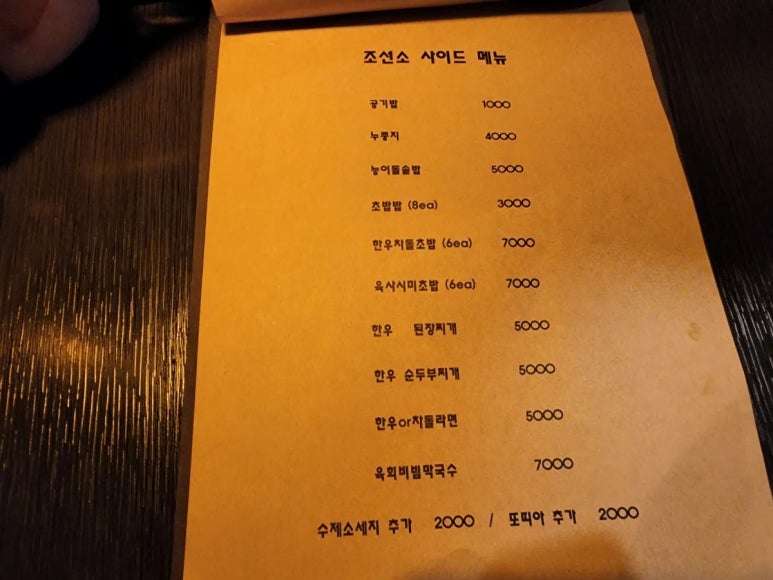 조선소 사이드 메뉴
공기밥 1000
누룽지 4000
능이돌솥밥 5000
초밥밥 (8ea) 3000
한우차돌초밥 (6ea) 7000
육사시미초밥 (6ea) 7000
한우 된장찌개 5000
한우 순두부찌개 5000
한우or차돌라면 5000
육회비빔막국수 7000
수제소세지 추가 2000 / 또띠아 추가 2000